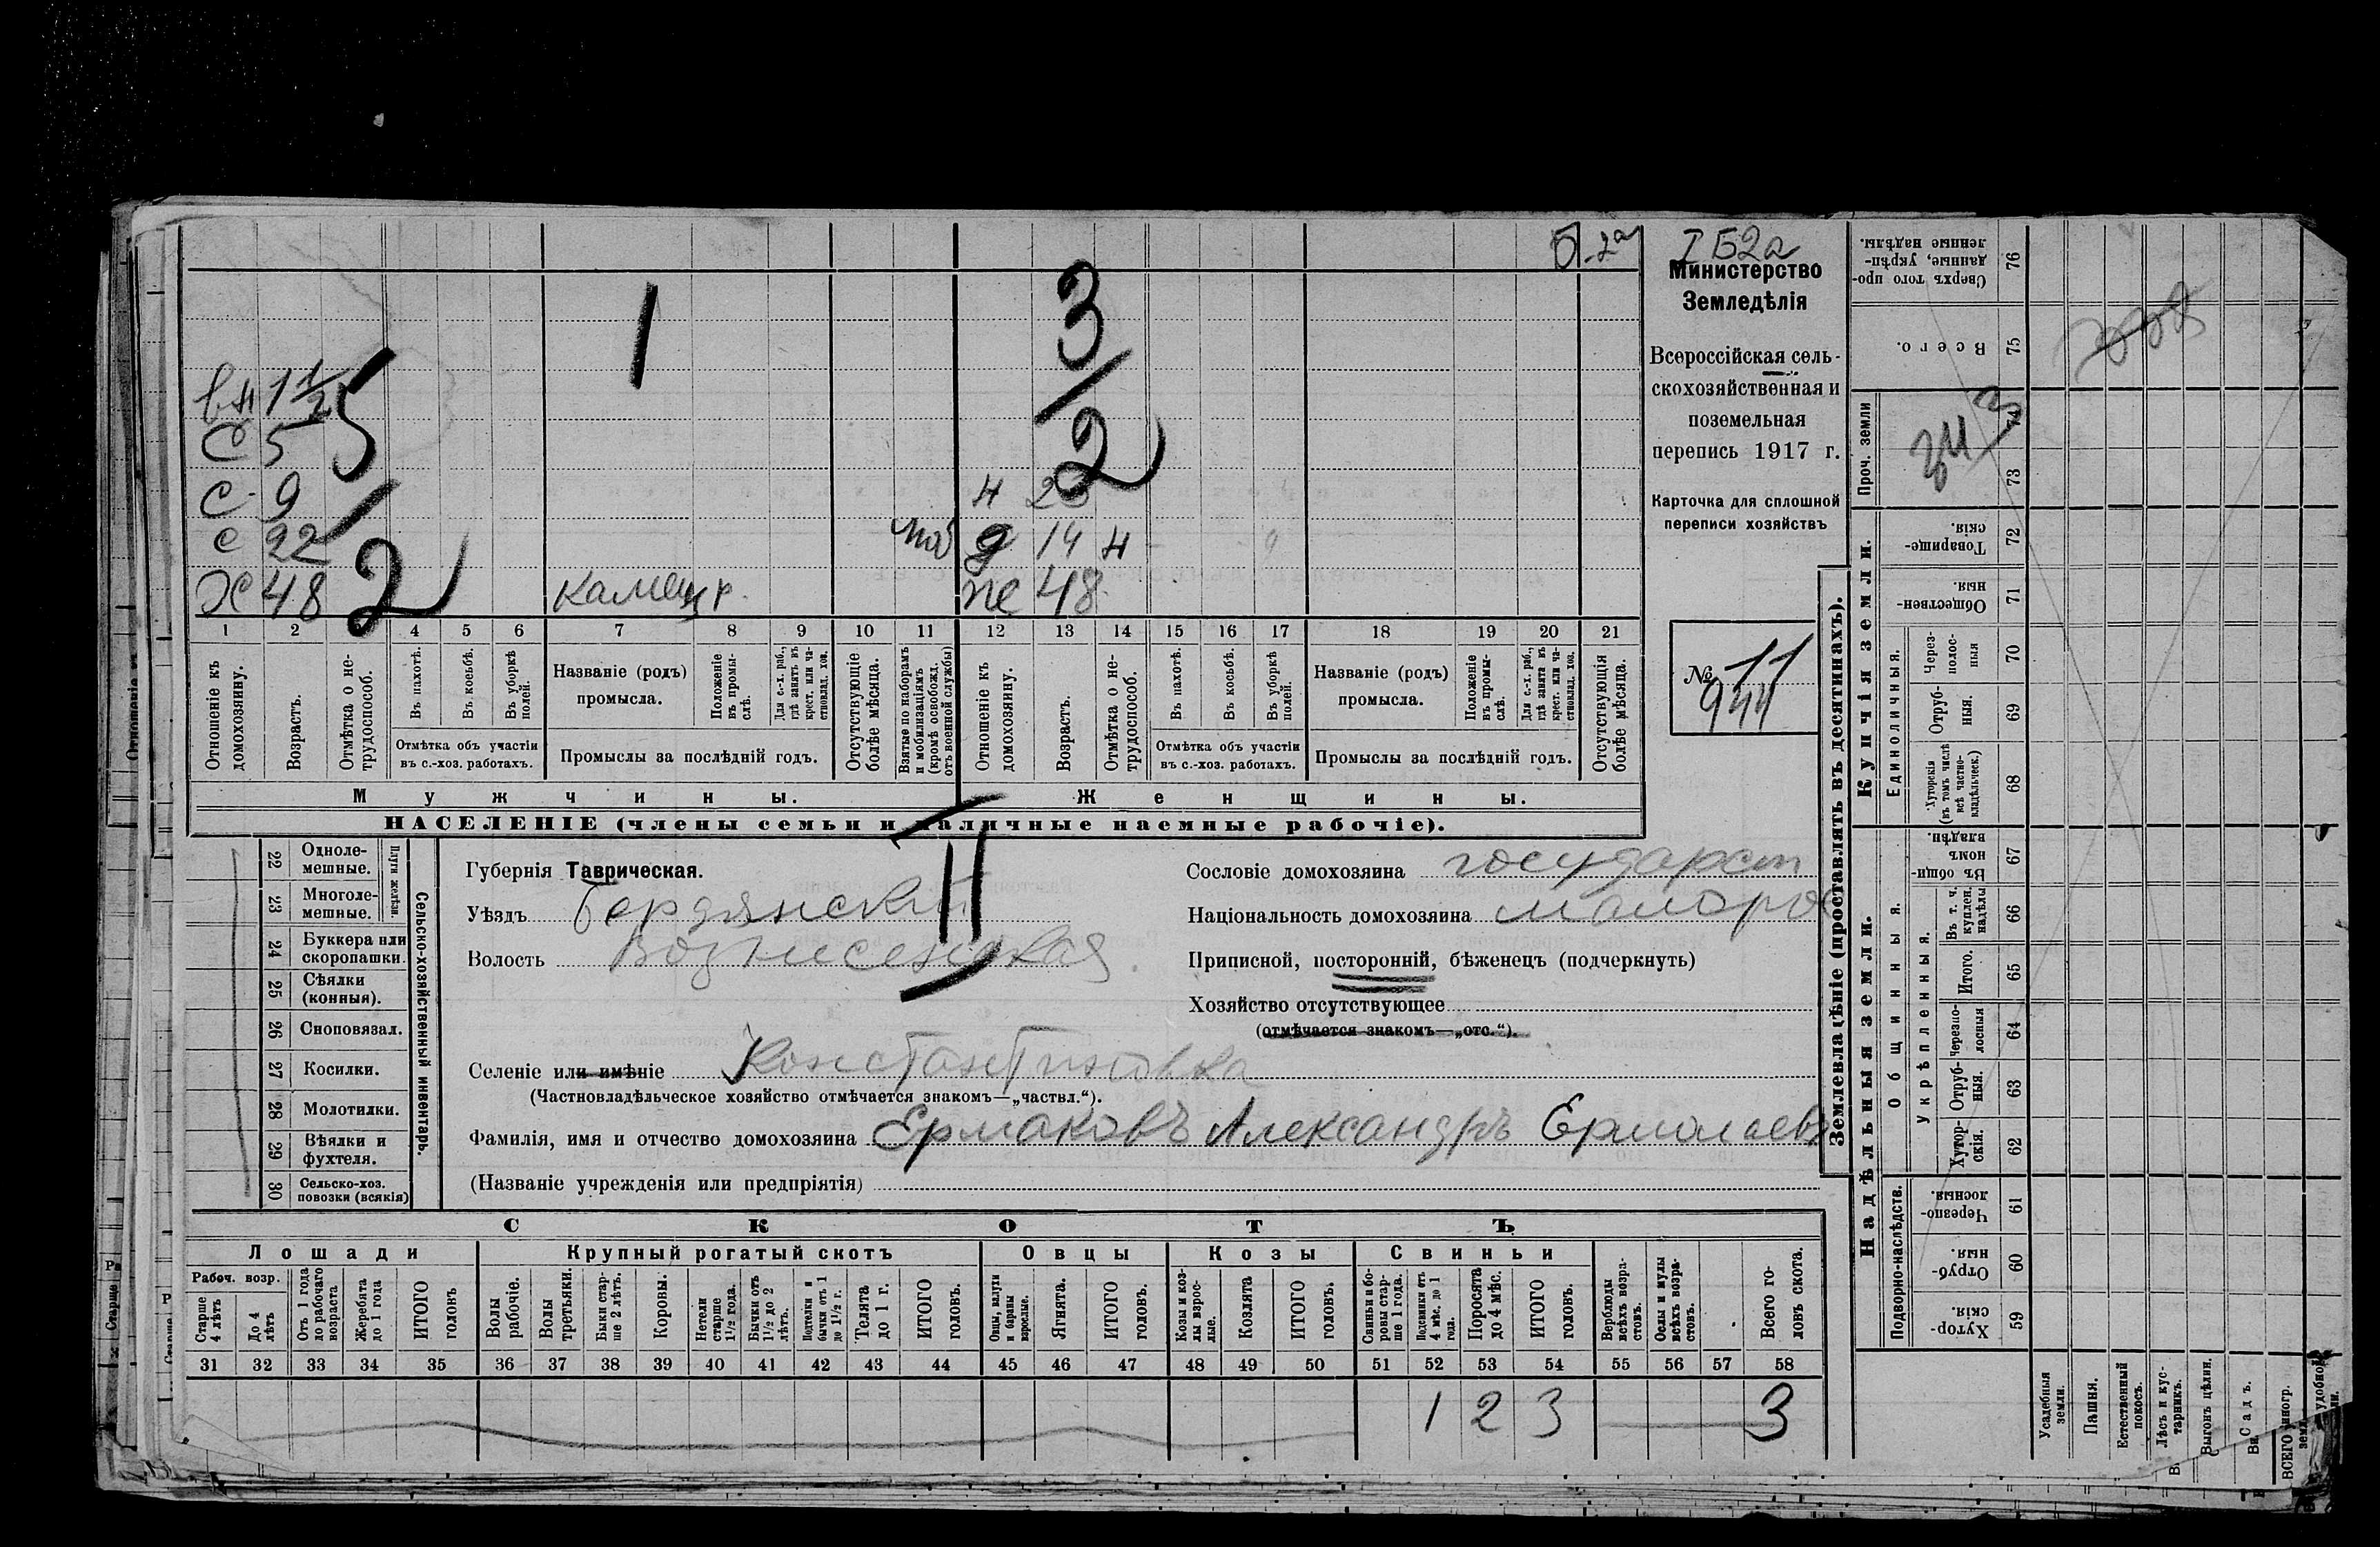 Б.2а
I Б2а
Министерство
Земледѣлія
Всероссійская сель-
скохозяйственная и
поземельная
перепись 1917 г.
Карточка для сплошной
переписи хозяйствъ
№ 11
944
1
3/2
5/2
вн 1 1/2
С 5
С 9
с 22
Х 48 каменщ
н 2
д 14 н
же 48
1 2 4 5 6 7 8 9 10 11 12 13 14 15 16 17 18 19 20 21
Отношеніе къ домохозяину.
Возрастъ.
Отмѣтка о не-трудоспособ.
Въ пахотѣ.
Въ косьбѣ.
Въ уборкѣ полей.
Отмѣтка объ участіи
въ с.-хоз. работахъ.
Названіе (родъ)
промысла.
Положеніе въ промы-слѣ.
Для с.-х. раб., гдѣ занятъ въ крест. или ча-стновлад. хоз.
Промыслы за послѣдній годъ.
Отсутствующіе болѣе мѣсяца.
Взятые по наборамъ и мобилизаціямъ (кромѣ освобожд. отъ военной службы)
Отношеніе къ домохозяину.
Возрастъ.
Отмѣтка о не-трудоспособ.
Въ пахотѣ.
Въ косьбѣ.
Въ уборкѣ полей.
Отмѣтка объ участіи
въ с.-хоз. работахъ.
Названіе (родъ)
промысла.
Положеніе въ промы-слѣ.
Для с.-х. раб., гдѣ занята въ крест. или ча-стновлад. хоз.
Промыслы за послѣдній годъ.
Отсутствующія болѣе мѣсяца.
Мужчины.
Женщины.
НАСЕЛЕНІЕ (члены семьи и наличные наемные рабочіе).
22 Одноле-мешные.
23 Многоле-мешные.
Плуги желѣзн.
24 Буккера или скоропашки.
25 Сѣялки (конныя).
26 Сноповязал.
27 Косилки.
28 Молотилки.
29 Вѣялки и фухтеля.
30 Сельско-хоз. повозки (всякія)
Сельско-хозяйственный инвентарь.
Губернія Таврическая.
Уѣздъ Бердянскій
Волость Вознесенская
11
Сословіе домохозяина государст
Національность домохозяина малорос
Приписной, посторонній, бѣженецъ (подчеркнуть)
Хозяйство отсутствующее
(отмѣчается знакомъ—„отс.“).
Селеніе или имѣніе Константиновка
(Частновладѣльческое хозяйство отмѣчается знакомъ—„частвл.“).
Фамилія, имя и отчество домохозяина Ермаковъ Александръ Ермолаевъ
(Названіе учрежденія или предпріятія)
СКОТЪ
Лошади
Крупный рогатый скотъ
Овцы
Козы
Свиньи
Рабоч. возр.
Старше 4 лѣтъ
До 4 лѣтъ
Отъ 1 года до рабочаго возраста
Жеребята до 1 года
ИТОГО головъ
Волы рабочіе.
Волы третьяки.
Быки стар-ше 2 лѣтъ.
Коровы.
Нетели старше 1½ года.
Бычки отъ 1½ до 2 лѣтъ.
Подтелки и бычки отъ 1 до 1½ г.
Телята до 1 г.
ИТОГО головъ.
Овцы, валухи и бараны взрослые.
Ягнята.
ИТОГО головъ.
Козы и коз-лы взрос-лые.
Козлята
ИТОГО головъ.
Свиньи и бо-ровы стар-ше 1 года.
Подсвинки отъ 4 мѣс. до 1 года.
Поросята до 4 мѣс.
ИТОГО головъ.
Верблюды всѣхъ возра-стовъ.
Ослы и мулы всѣхъ возра-стовъ.
Всего го-ловъ скота.
31 32 33 34 35 36 37 38 39 40 41 42 43 44 45 46 47 48 49 50 51 52 53 54 55 56 57 58
1 2 3 3
Землевладѣніе (проставлять въ десятинахъ).
Купчія земли.
Надѣльныя земли.
Сверхъ того про-данные, укрѣп-ленные надѣлы. 76
Всего. 75
Проч. земли
74
73
Товарище-скія. 72
Обществен-ныя. 71
Единоличныя.
Через-полос-ныя 70
Отруб-ныя. 69
Хуторскія (въ томъ числѣ всѣ частно-владѣльческ.) 68
Общинныя.
Въ общи-номъ владѣн. 67
Укрѣпленныя.
Въ т. ч. куплен. надѣлы 66
Итого. 65
Черезпо-лосныя 64
Отруб-ныя. 63
Хутор-скія. 62
Подворно-наслѣдств.
Черезпо-лосныя. 61
Отруб-ныя. 60
Хутор-скія. 59
Усадебныя земли.
Пашня.
Естественный покосъ.
Лѣсъ и кус-тарникъ.
Выгонъ цѣлин.
Садъ.